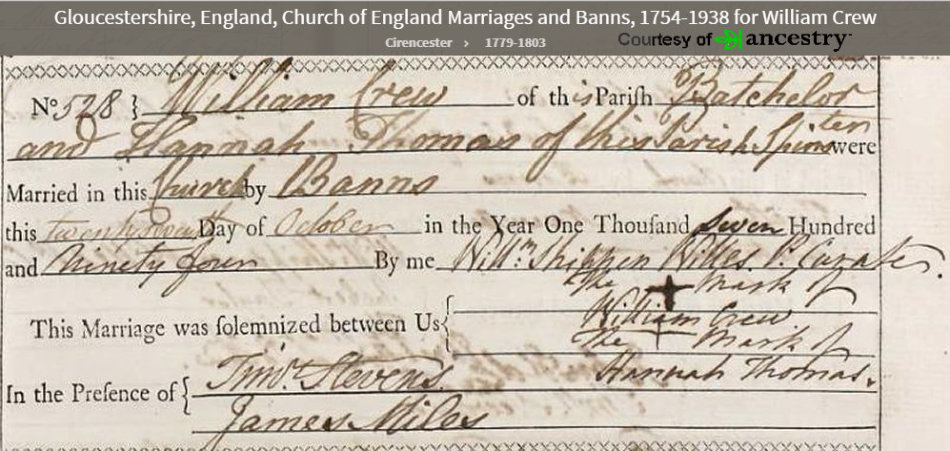 Gloucestershire, England, Church of England Marriages and Banns, 1754-1938 for William Crew
Cirencester › 1779-1803
Courtesy of ancestry
No 528 } William Crew of this Parish Batchelor
and Hannah Thomas of this Parish Spinster were
Married in this Church by Banns
this twenty seventh Day of October in the Year One Thousand seven Hundred
and Ninety four By me Willm Shippen Willes P. Curate.
The + Mark of
William Crew
This Marriage was solemnized between Us {
The + Mark of
Hannah Thomas.
In the Presence of { Timo. Stevens.
James Miles